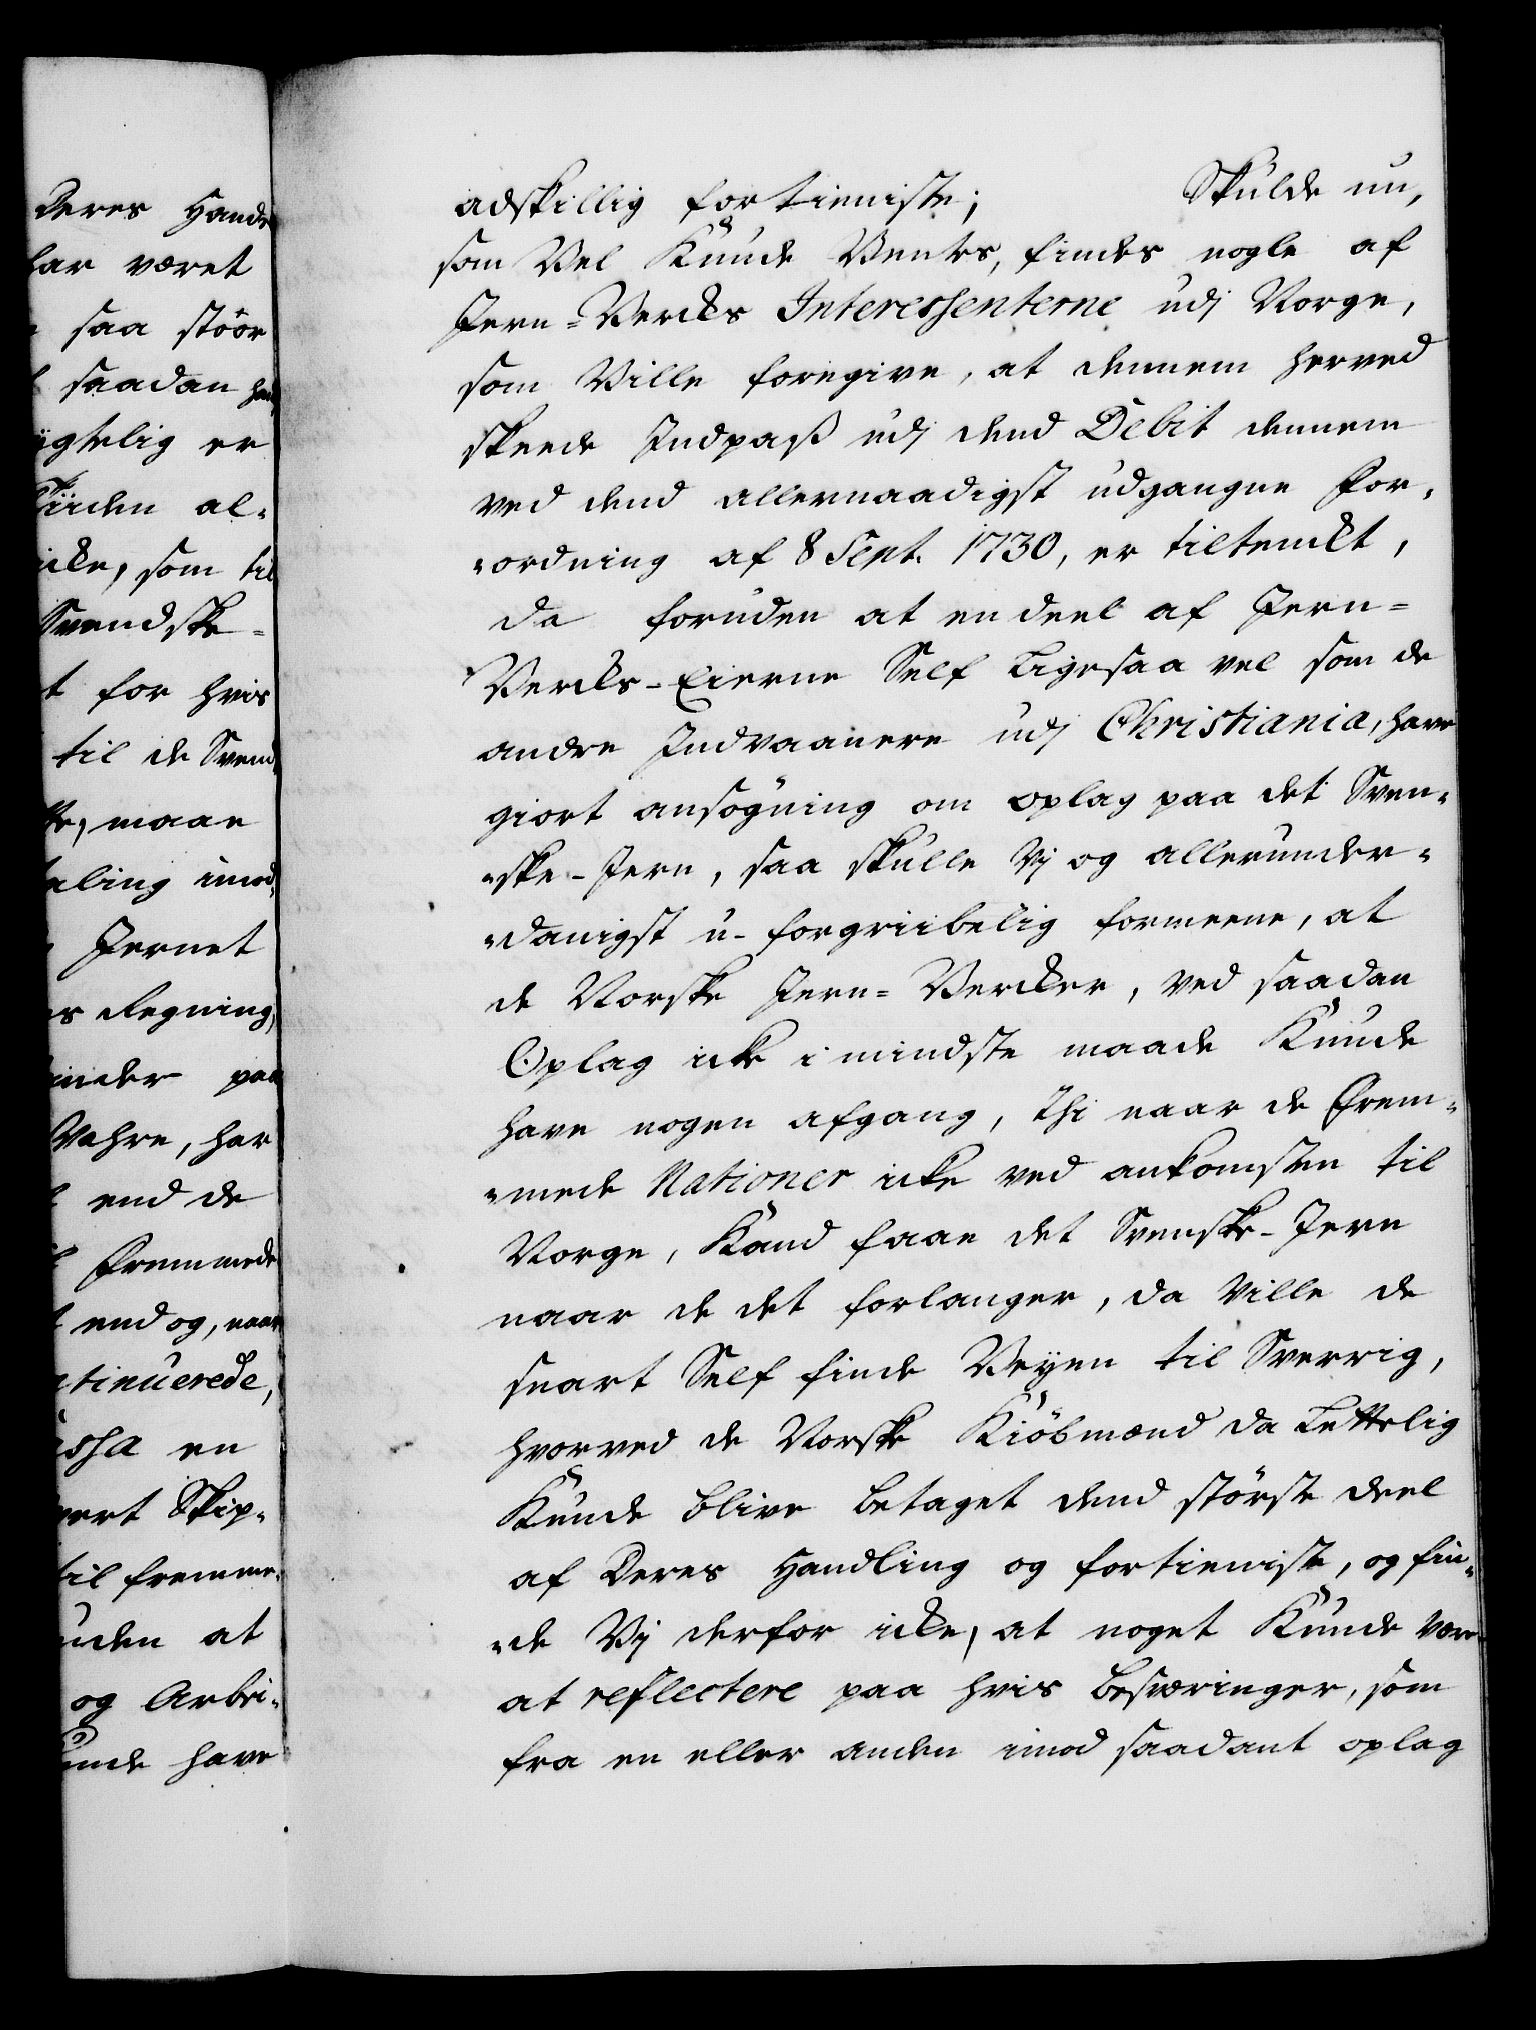 Deres Hand
har været
saa stöör
saadan
igtelig er
Tiiden al-
icke, som til
Svendske-
t for hvis
til de Svend
maae
aling imod
Jernet
Regning,
inder paa
Wahre, har
end de
fremmede
end og, naar
ntinuerede,
en
vert Skip-
til fremme-
uden at
og Arbei-
unde have
adskillig fortieniste; Skulde nu,
som Vel Kunde Ventes, findes nogle af
Jern-Vercks Interessenterne udj Norge,
som Ville foregive, at dennem herved
skeede Indpaß udj dend Debit dennem
ved dend allernaadigst udgangne For-
-ordning af 8 Sept. 1730, er tiltenckt,
da foruden at endeel af Jern-
Vercks-Eierne Self Ligesaa vel som de
andre Indvaanere udj Christiania, have
giort ansögning om oplag paa det Sven-
-ske-Jern, saa skulle Vj og allerunder-
-danigst u-forgriibelig formeene, at
de Norske Jern-Vercker, ved saadan
Oplag icke i mindste maade Kunde
have nogen afgang, Thi naar de Frem-
-mede Nationer icke ved ankomsten til
Norge, Kand faae det Svenske-Jern
naar de det forlanger, da Ville de
snart Self finde Veyen til Sverrig,
hvorved de Norske Kiöbmænd da Lettelig
Kunde blive betaget dend störste deel
af Deres Handling og fortieniste, og fin-
-de Vj derfor icke, at noget Kunde være
at reflectere paa hvis besværinger, som
fra en eller anden imod saadant oplag